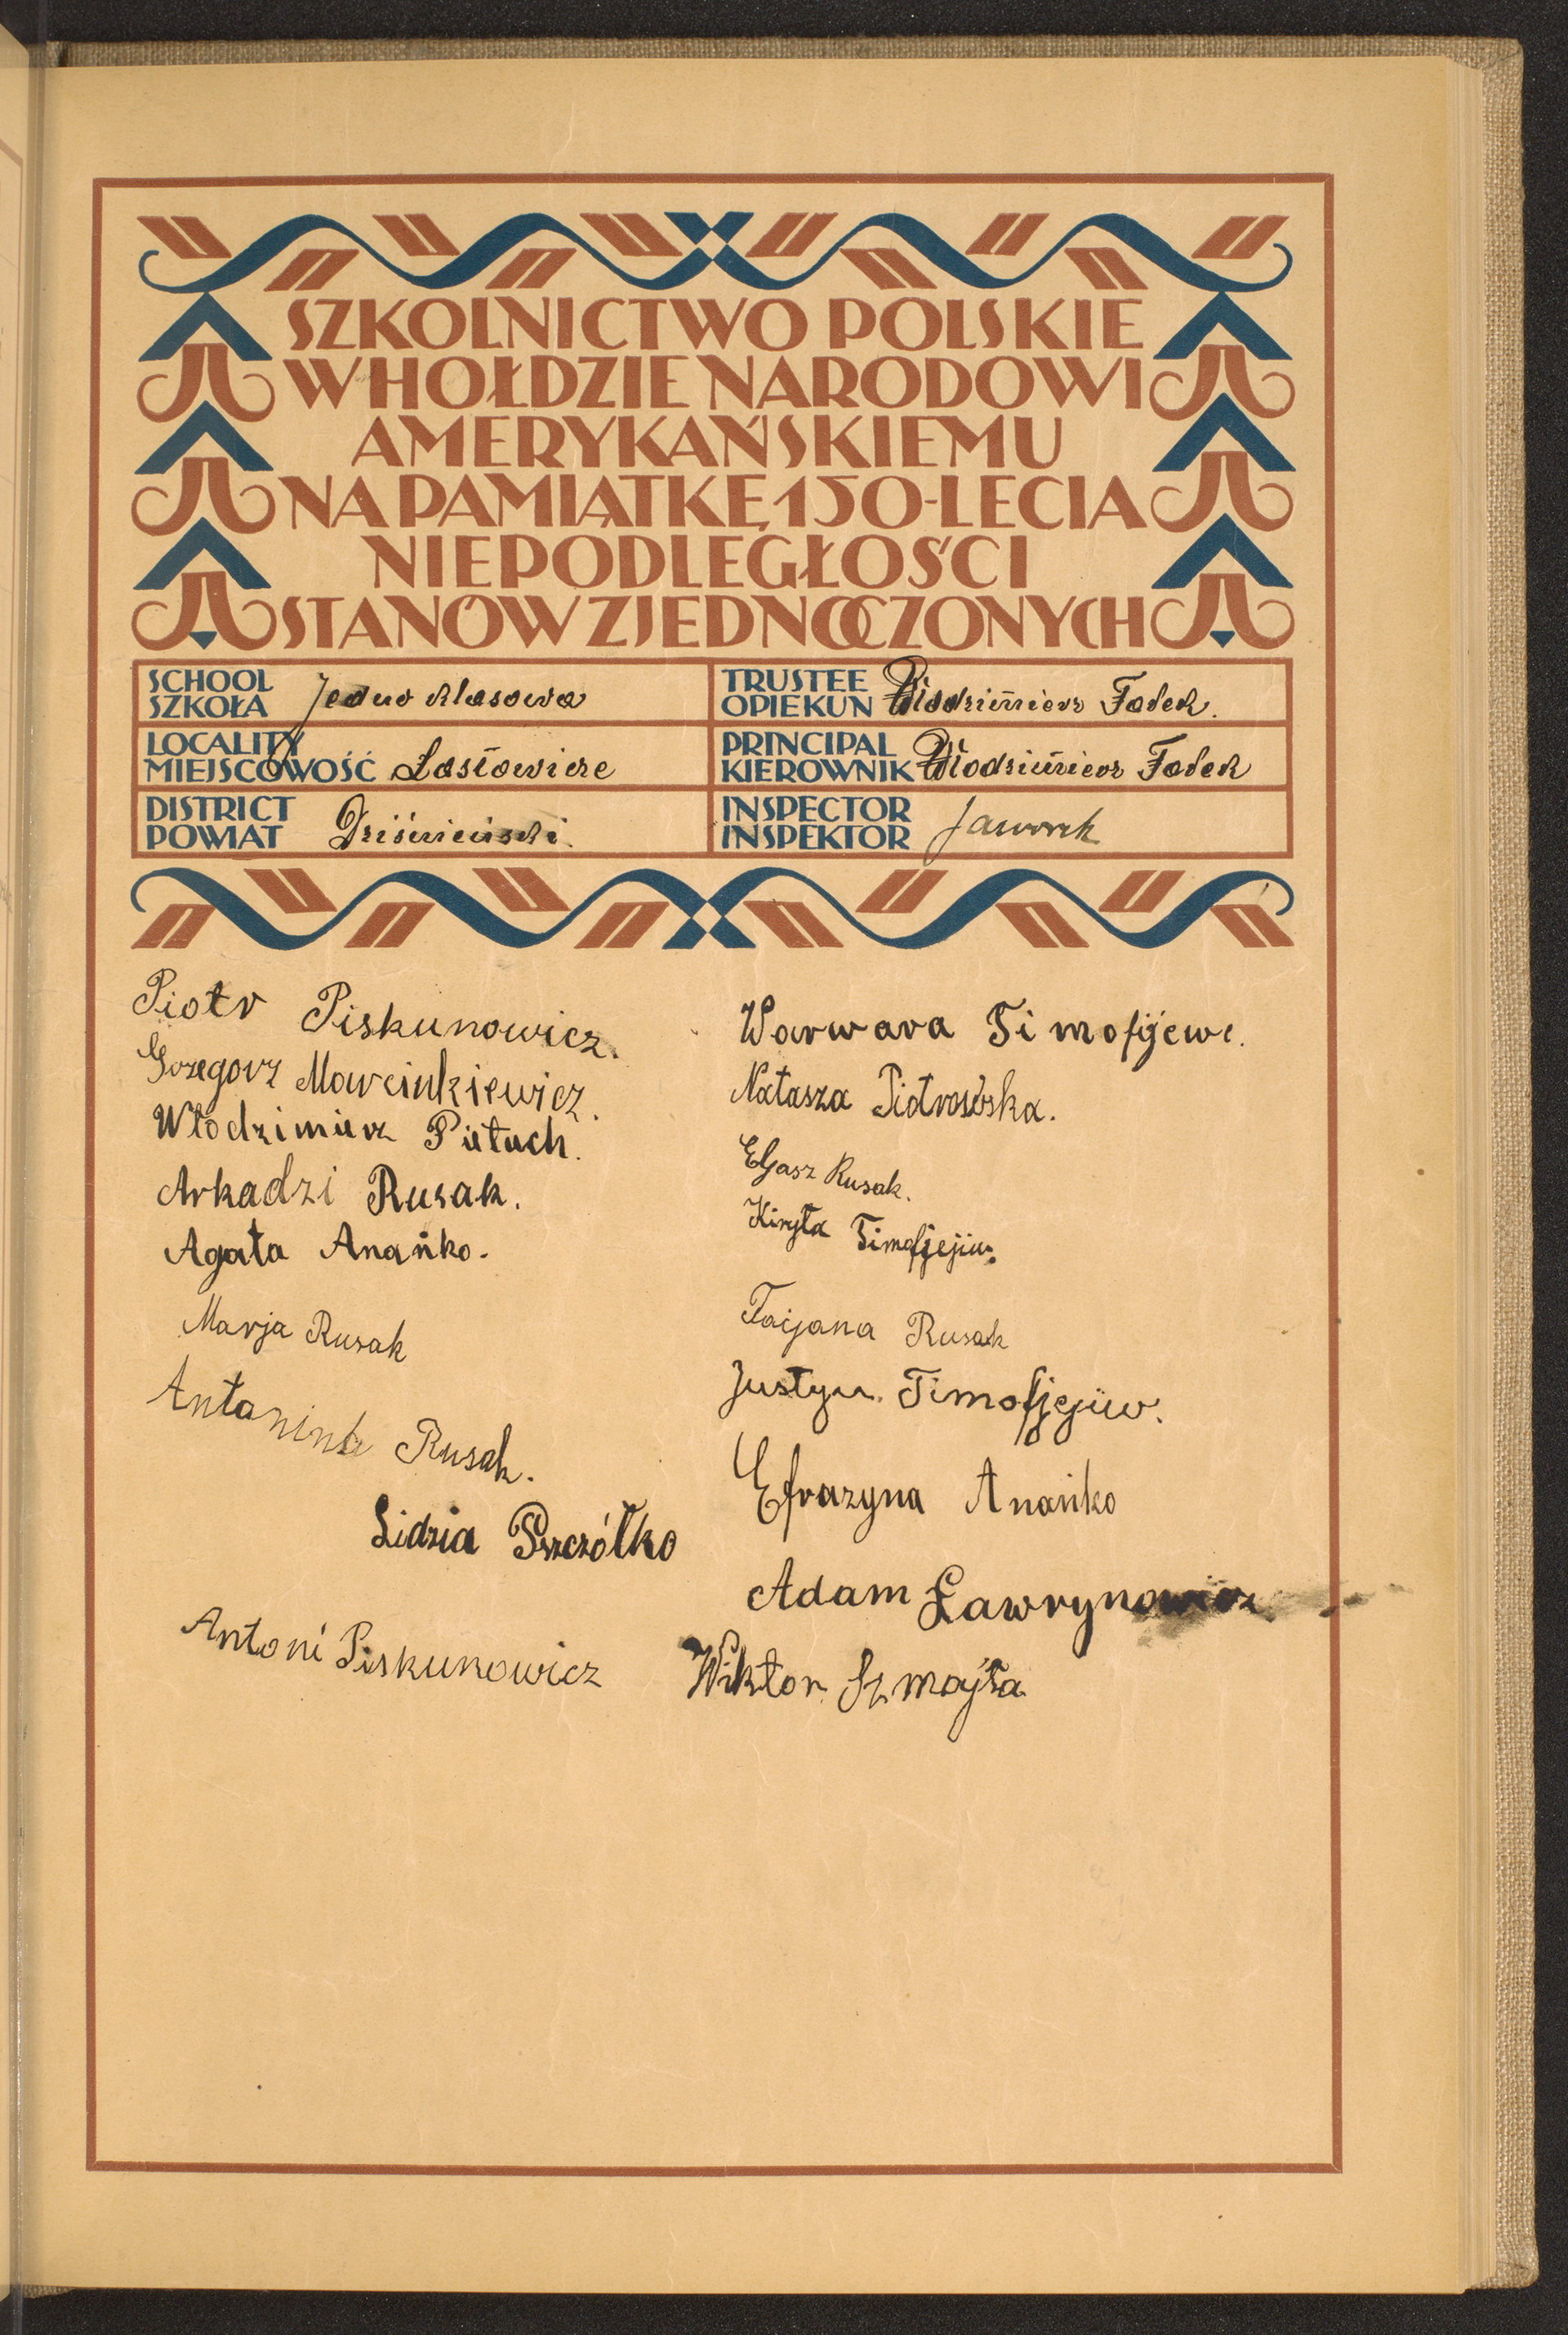 SZKOLNICTWO POLSKIE
W HOŁDZIE NARODOWI
AMERYKAŃSKIEMU
NA PAMIĄTKĘ 150-LECIA
NIEPODLEGŁOŚCI
STANÓW ZJEDNOCZONYCH
SCHOOL
SZKOŁA Jedno klasowa
TRUSTEE
OPIEKUN Włodzimierz Fałek.
LOCALITY
MIEJSCOWOŚĆ Łastowicze
PRINCIPAL
KIEROWNIK Włodzimierz Fałek
DISTRICT
POWIAT Dziśnieński.
INSPECTOR
INSPEKTOR Jaworek
Piotr Piskunowicz.
Grzegorz Marcinkiewicz.
Włodzimierz Pietuch.
Arkadzi Rusak.
Agata Anańko.
Marja Rusak
Antanina Rusak.
Lidzia Pszczółko
Antoni Piskunowicz
Warwara Timofijewe.
Natasza Piotrowska.
Eljasz Rusak.
Kiryła Timofjejiw.
Tacjana Rusak
Justyn. Timofjejiw.
Efrazyna Anańko
Adam Ławrynowicz
Wiktor Szmajła